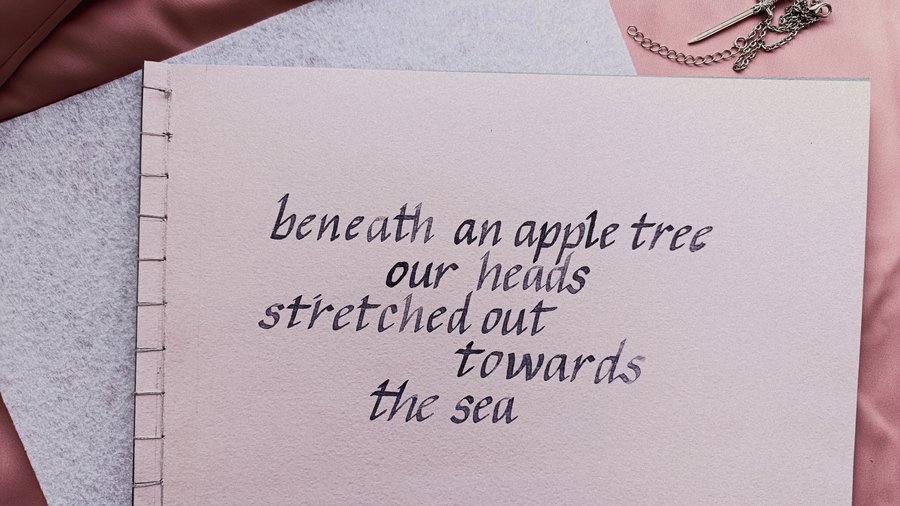 beneath an apple tree
our heads
stretched out
towards
the sea